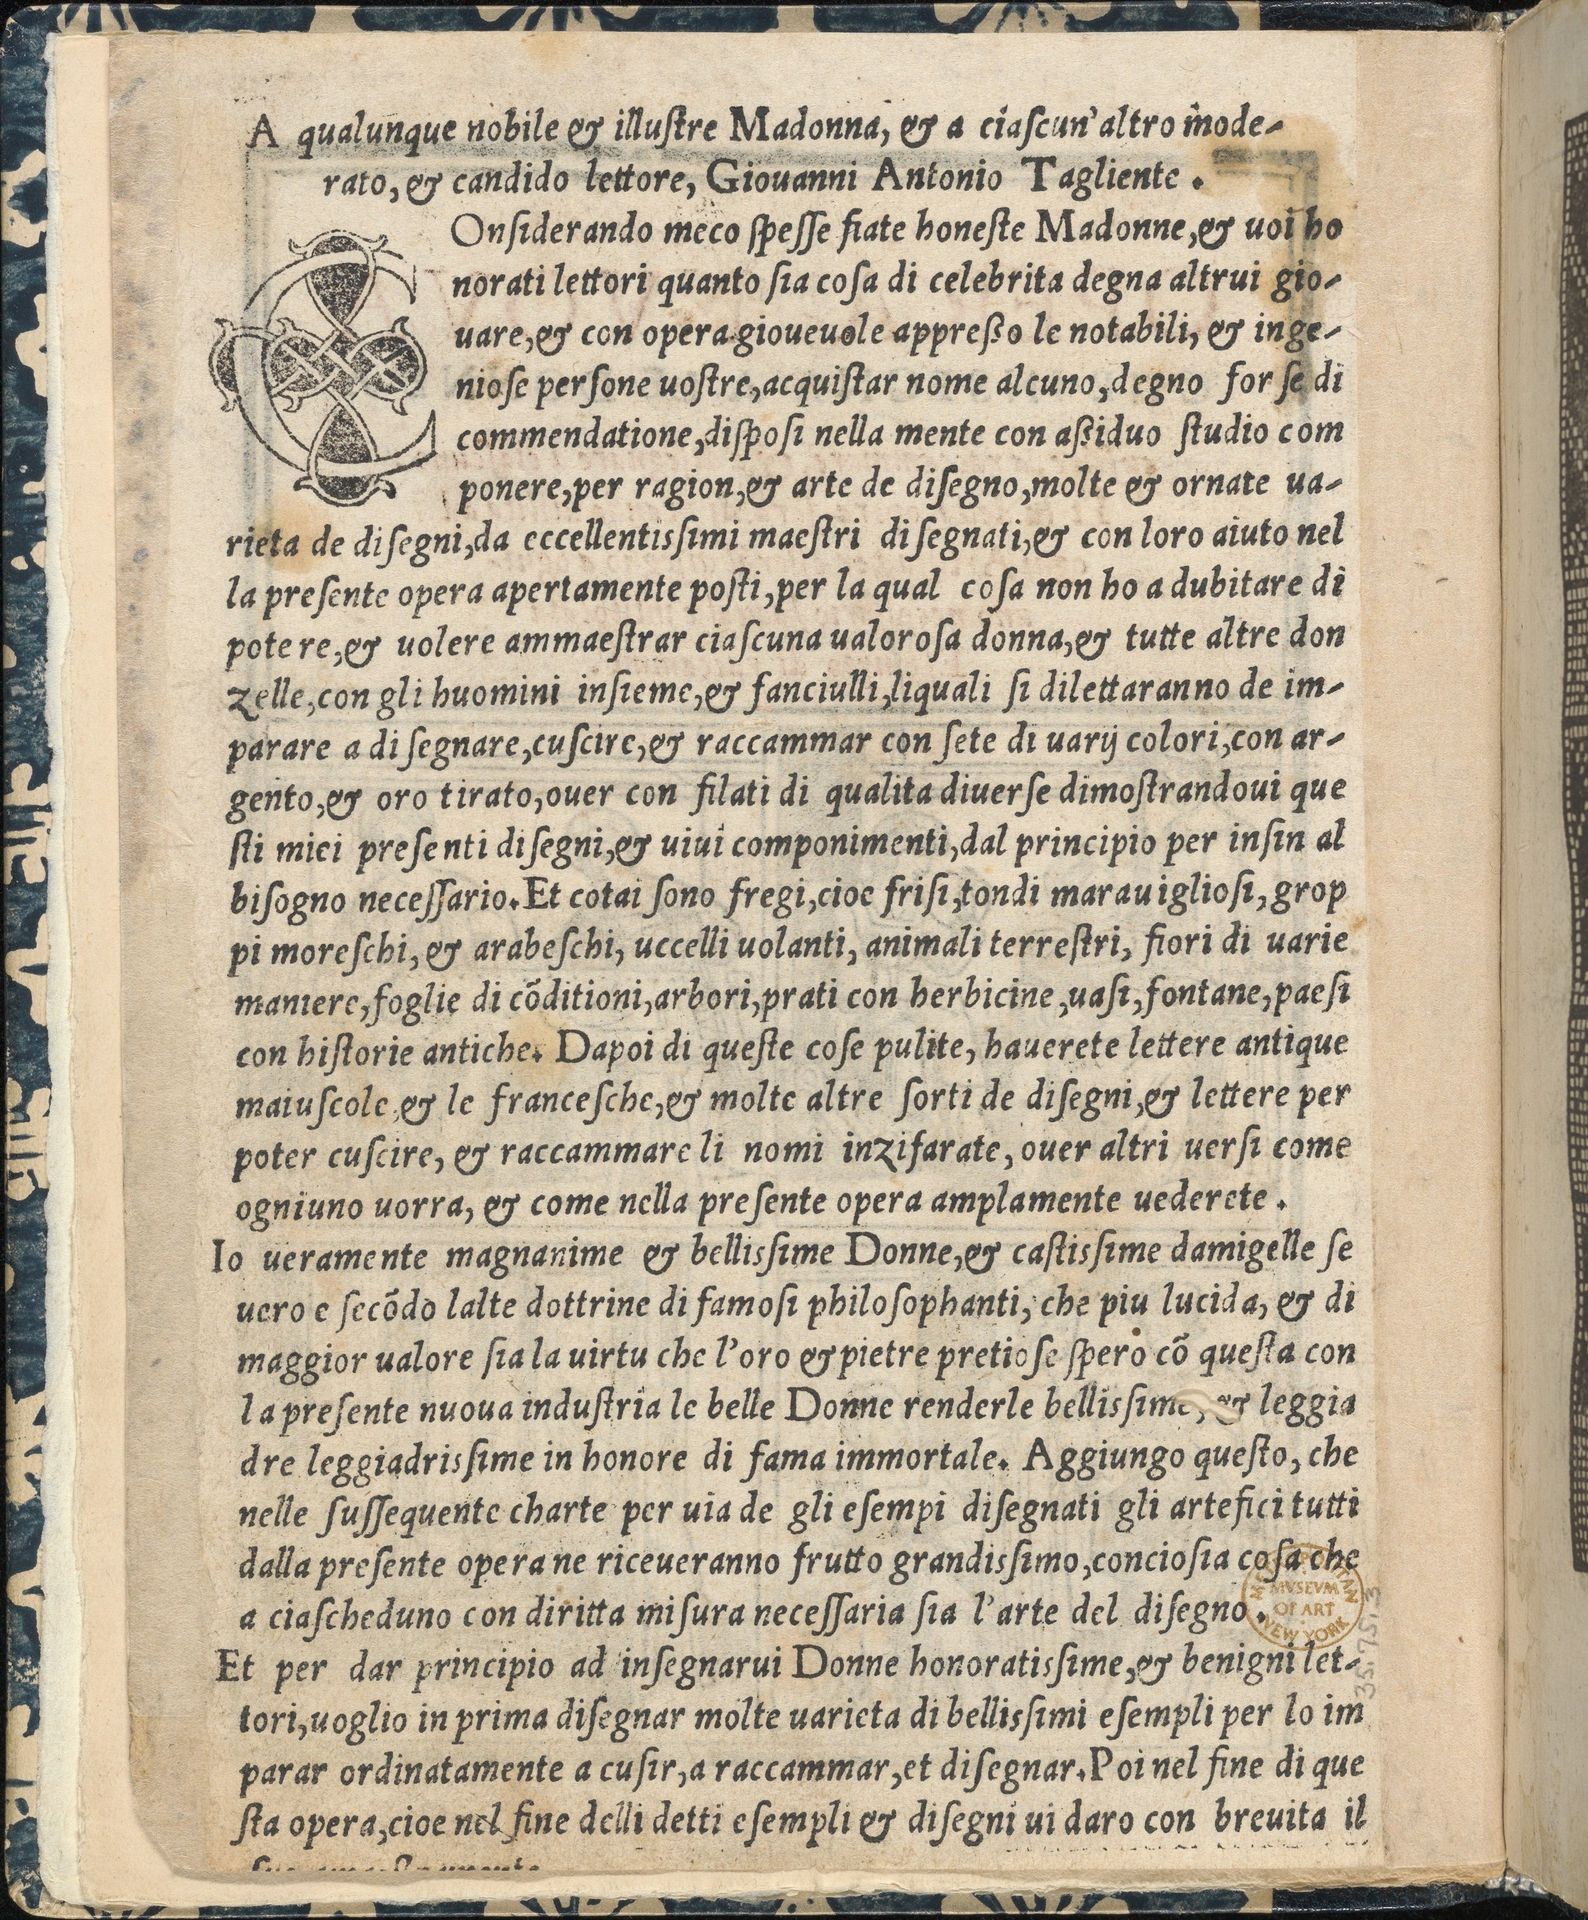 A qualunque nobile & illuſtre Madonna, & a ciaſcun'altro mode-
rato, & candido lettore, Giouanni Antonio Tagliente.
COnſiderando meco ſpeſſe fiate honeſte Madonne, & uoi ho
norati lettori quanto ſia coſa di celebrita degna altrui gio-
uare, & con opera gioueuole appreßo le notabili, & inge-
nioſe perſone uoſtre, acquiſtar nome alcuno, degno forſe di
commendatione, diſpoſi nella mente con aßiduo ſtudio com
ponere, per ragion, & arte de diſegno, molte & ornate ua-
rieta de diſegni, da eccellentisſimi maeſtri diſegnati, & con loro aiuto nel
la preſente opera apertamente poſti, per la qual coſa non ho a dubitare di
potere, & uolere ammaeſtrar ciaſcuna ualoroſa donna, & tutte altre don
zelle, con gli huomini inſieme, & fanciulli, liquali ſi dilettaranno de im-
parare a diſegnare, cuſcire, & raccammar con ſete di uarij colori, con ar-
gento, & oro tirato, ouer con filati di qualita diuerſe dimoſtrandoui que
ſti miei preſenti diſegni, & uiui componimenti, dal principio per inſin al
biſogno neceſſario. Et cotai ſono fregi, cioe friſi, tondi marauiglioſi, grop
pi moreſchi, & arabeſchi, uccelli uolanti, animali terreſtri, fiori di uarie
maniere, foglie di cõditioni, arbori, prati con herbicine, uaſi, fontane, paeſi
con hiſtorie antiche. Dapoi di queſte coſe pulite, hauerete lettere antique
maiuſcole, & le franceſche, & molte altre ſorti de diſegni, & lettere per
poter cuſcire, & raccammare li nomi inzifarate, ouer altri uerſi come
ogniuno uorra, & come nella preſente opera amplamente uederete.
Io ueramente magnanime & bellisſime Donne, & caſtisſime damigelle ſe
uero e ſecõdo lalte dottrine di famoſi philoſophanti, che piu lucida, & di
maggior ualore ſia la uirtu che l'oro & pietre pretioſe ſpero cõ queſta con
la preſente nuoua induſtria le belle Donne renderle bellisſime, & leggia
dre leggiadrisſime in honore di fama immortale. Aggiungo queſto, che
nelle ſuſſequente charte per uia de gli eſempi diſegnati gli artefici tutti
dalla preſente opera ne riceueranno frutto grandisſimo, concioſia coſa che
a ciaſcheduno con diritta miſura neceſſaria ſia l'arte del diſegno.
MVSEVM
OF ART
NEW YORK
Et per dar principio ad inſegnarui Donne honoratisſime, & benigni let-
tori, uoglio in prima diſegnar molte uarieta di bellisſimi eſempli per lo im
parar ordinatamente a cuſir, a raccammar, et diſegnar. Poi nel fine di que
ſta opera, cioe nel fine delli detti eſempli & diſegni ui daro con breuita il